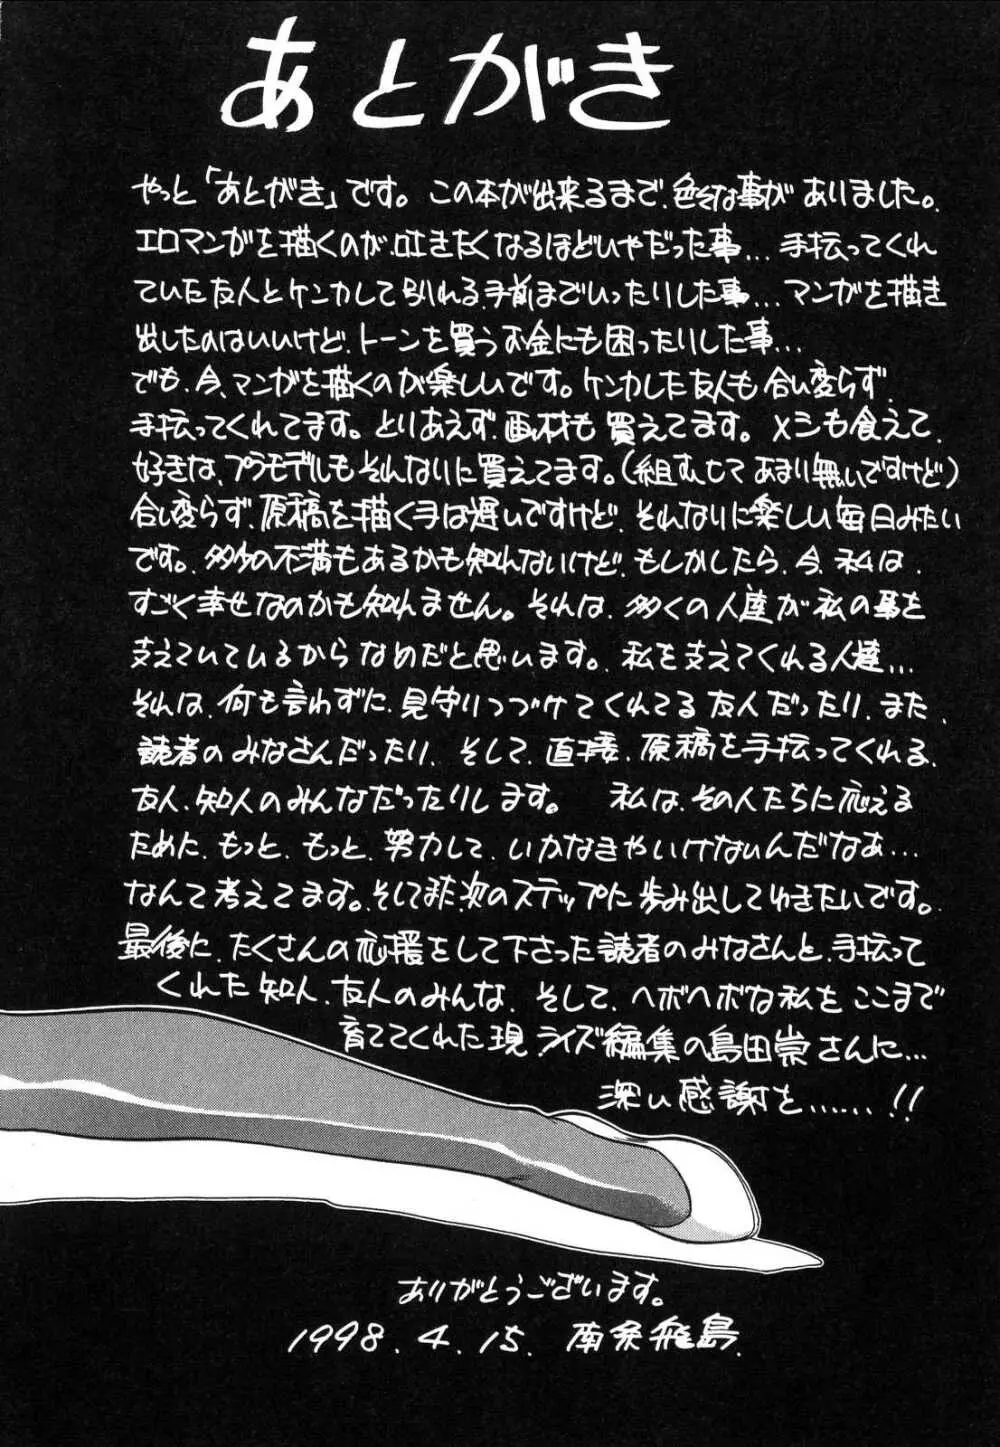 あとがき
やっと「あとがき」です。この本が出来るまで、色々な事がありました。
エロマンガを描くのが、吐きたくなるほどいやだった事…手伝ってくれ
ていた友人とケンカして別れる手前までいったりした事…マンガを描き
出したのはいいけど、トーンを買うお金にも困ったりした事…
でも、今、マンガを描くのが楽しいです。ケンカした友人も合い変らず、
手伝ってくれてます。とりあえず、画材も買えてます。メシも食えて、
好きな、プラモデルもそれなりに買えてます。(組むヒマあまり無いですけど)
合い変らず、原稿を描く手は遅いですけど、それなりに楽しい毎日みたい
です。多少の不満もあるかも知れないけど、もしかしたら、今、私は、
すごく幸せなのかも知れません。それは、多くの人達が私の事を
支えていているからなめだと思います。私を支えてくれる人達…
それは、何も言わずに、見守りつづけてくれてる友人だったり、また、
読者のみなさんだったり、そして、直接、原稿を手伝ってくれる、
友人、知人のみんなだったりします。 私は、その人たちに応える
ために、もっと、もっと、努力して、いかなきゃいけないんだなぁ…
なんて考えてます。そしてまた、次のステップに歩み出してゆきたいです。
最後に、たくさんの応援をして下さった読者のみなさんと、手伝って
くれた知人、友人のみんな、そして、ヘボヘボな私をここまで
育ててくれた現ライズ編集の島田崇さんに…
深い感謝を……!!
ありがとうございます。
1998.4.15. 南条飛鳥.